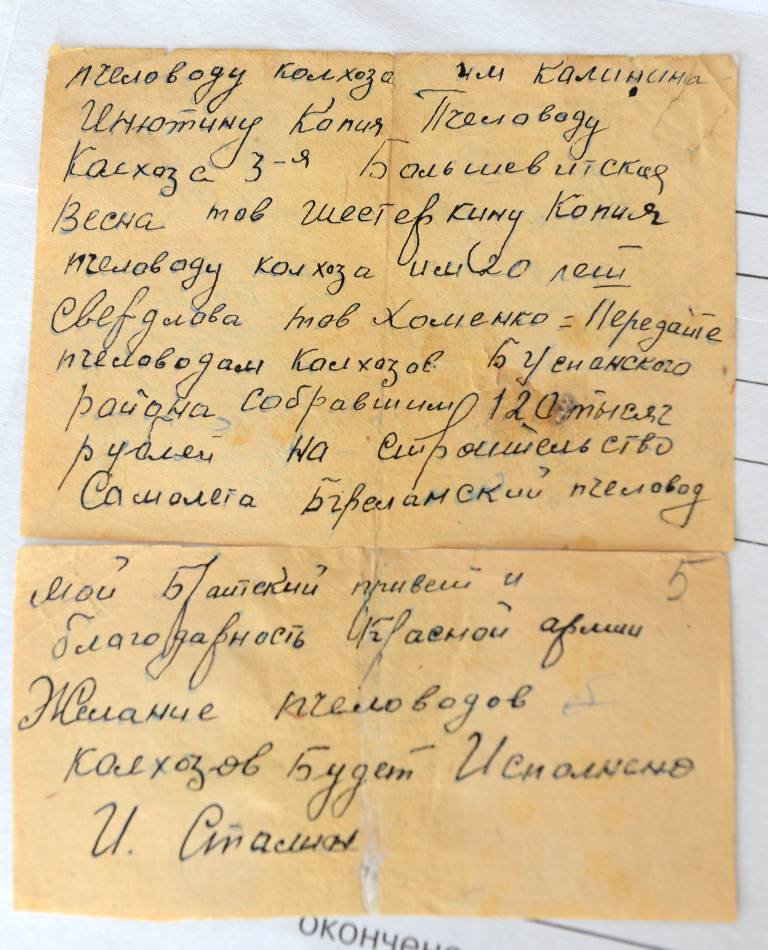 пчеловоду колхоза им Калинина
Инютину Копия Пчеловоду
Колхоза 3-я Большевитская
Весна тов Шестеркину Копия
пчеловоду колхоза им 20 лет
Свердлова тов Хоменко = Передайте
пчеловодам колхозов
района собравшим 120 тысяч
рублей на строительство
Самолета пчеловод
Мой Братский привет и 5
благодарность Красной армии
Желание пчеловодов
колхозов Будет Исполнено
И. Сталин
окончено